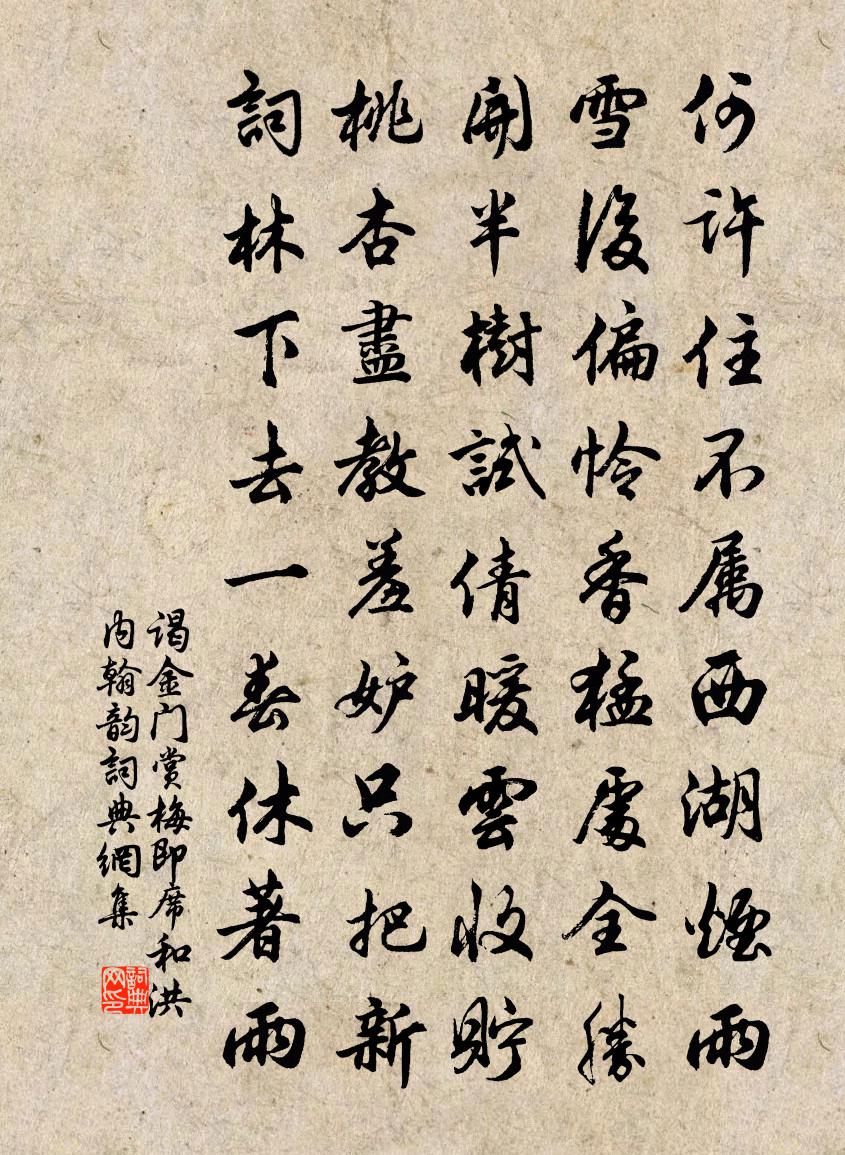 何許住不属西湖煙雨
雪後偏怜香猛處全勝
開半樹試倩暖雲收貯
桃杏盡教羞妒只把新
詞林下去一春休著雨
谒金门赏梅即席和洪
内翰韵詞典網集
詞典网印